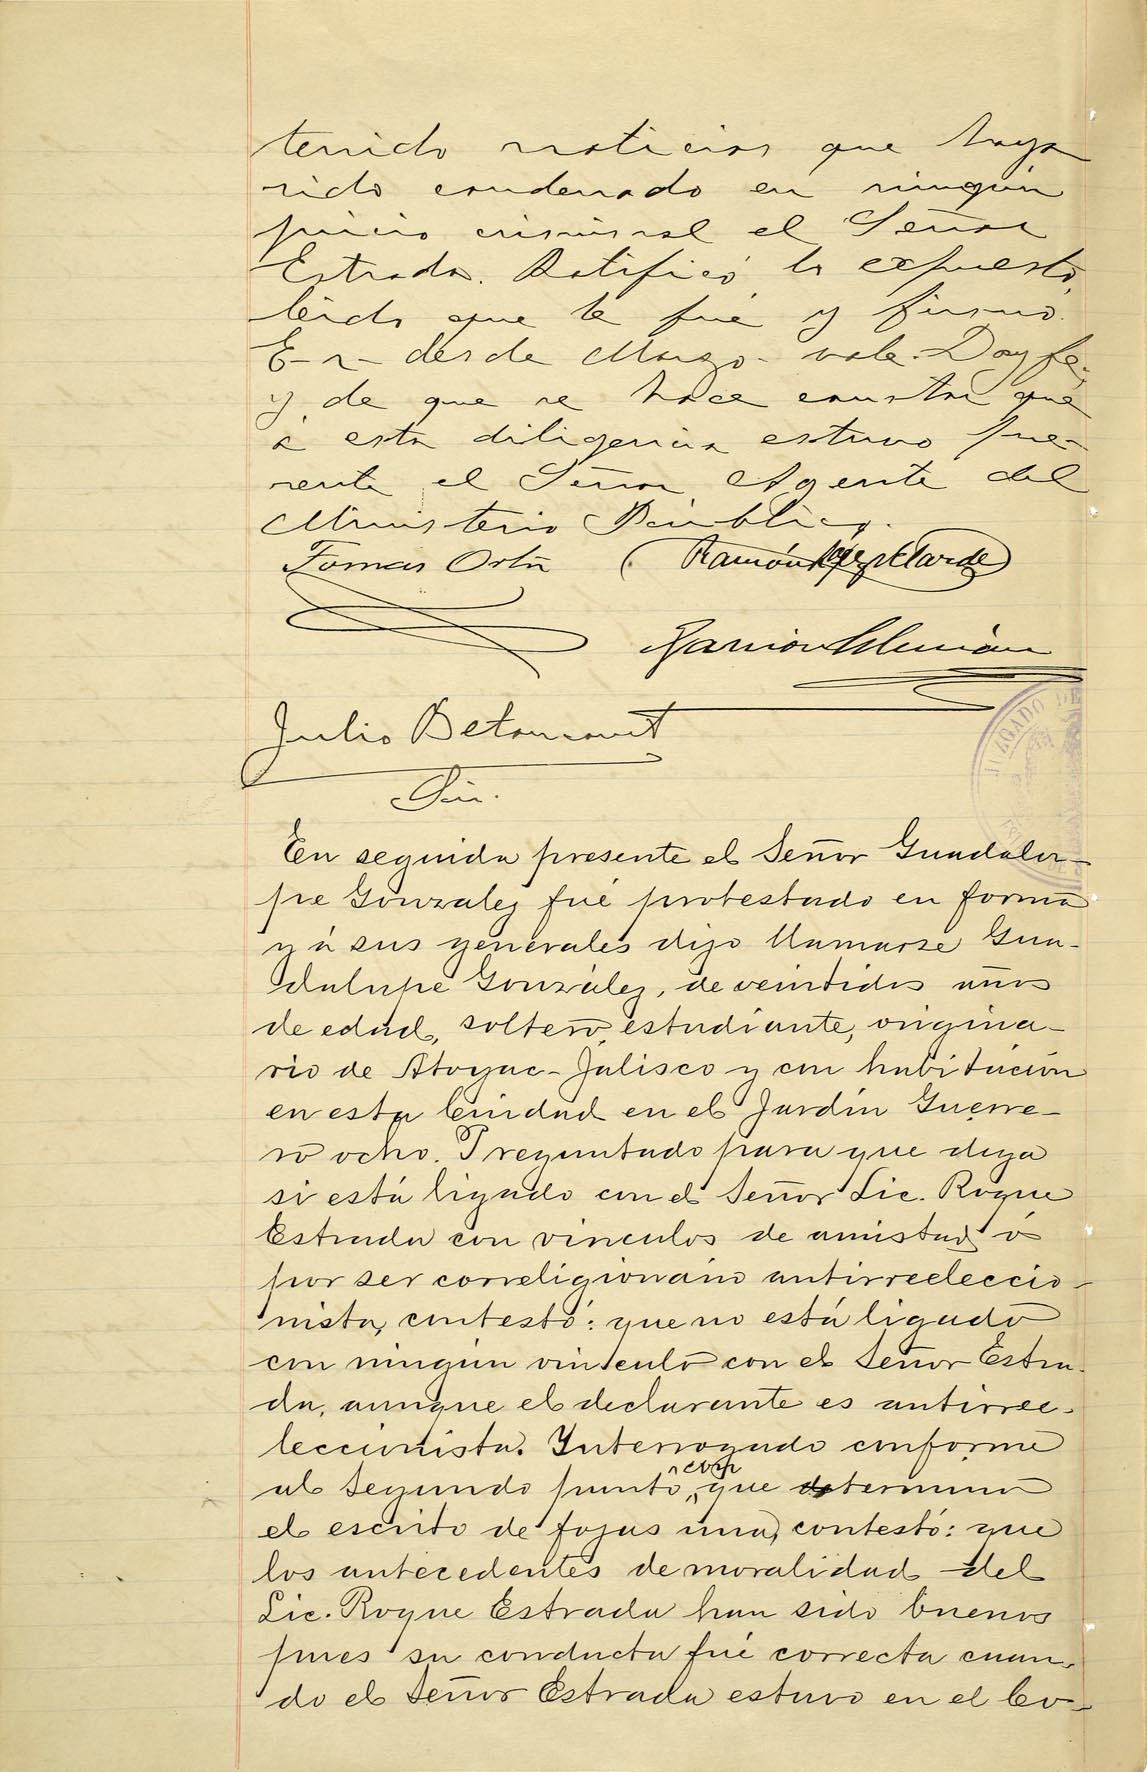 tenido noticias que haya
sido condenado en ningún
juicio criminal el Señor
Estrada. Ratificó lo expuesto,
leido que le fué y firmó.
E- r- desde Marzo- vale. Doy fe,
y de que se hace constar que
á esta diligencia estuvo pre-
sente el Señor Agente del
Ministerio Público.
Tomas Ortiz Ramón López Velarde
Ramón Alemán
Julio Betancourt
Srio.
JUZGADO DE
En seguida presente el Señor Guadalu-
pe Gonzalez fué protestado en forma
y á sus generales dijo llamarse Gua-
dalupe González, de veintidos años
de edad, soltero, estudiante, origina-
rio de Atoyac-Jalisco y con habitación
en esta Ciudad en el Jardin Guerre-
ro ocho. Preguntado para que diga
si está ligado con el Señor Lic. Roque
Estrada con vinculos de amistad ó
por ser correligionario antirreeleccio-
nista, contestó: que no está ligado
con ningun vinculo con el Señor Estra-
da, aunque el declarante es antirree-
leccionista. Interrogado conforme
al segundo punto, con que determina
el escrito de fojas una, contestó: que
los antecedentes de moralidad del
Lic. Roque Estrada han sido buenos
pues su conducta fué correcta cuan-
do el Señor Estrada estuvo en el Co-